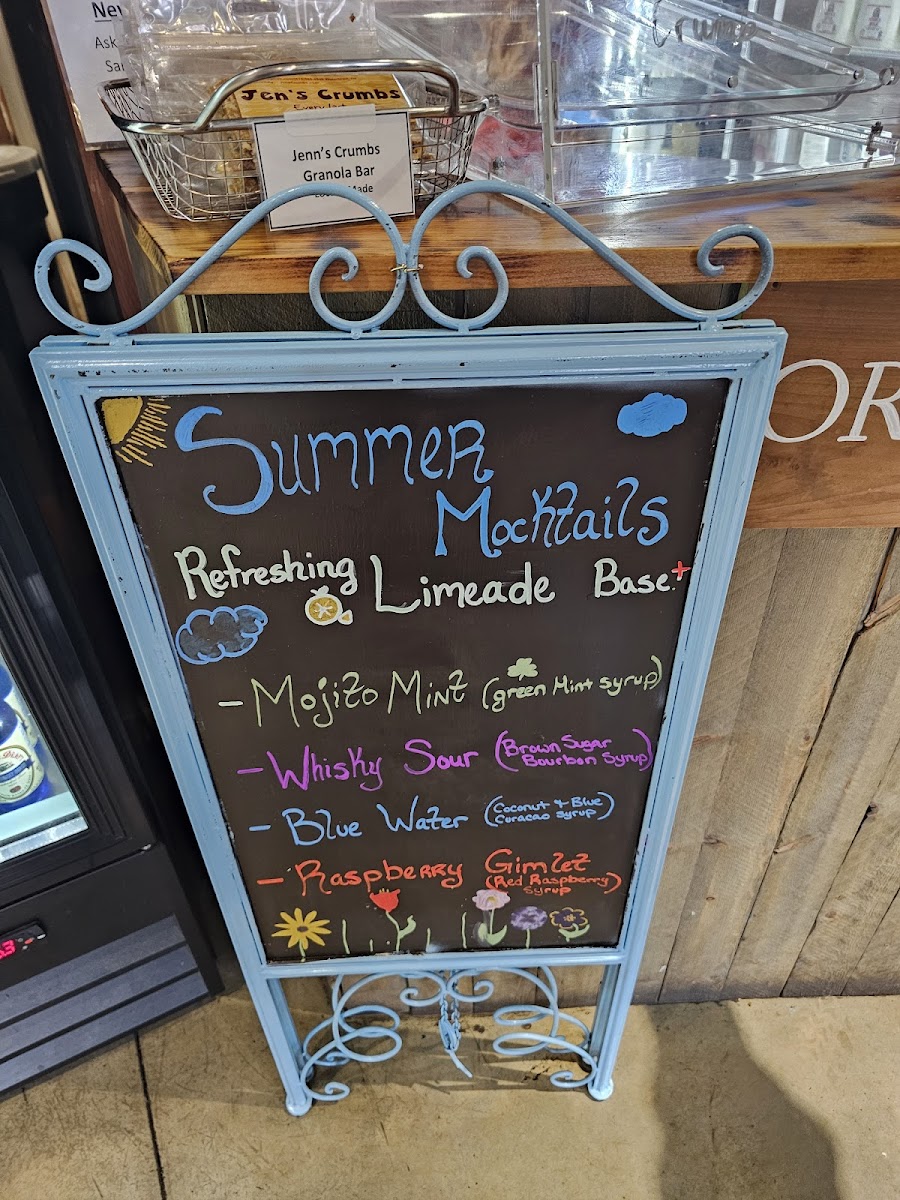 Jen's Crumbs
Jenn's Crumbs
Granola Bar
Made
OR
Summer
Mocktails
Refreshing Limeade Base! +
- Mojito Mint (green Mint syrup)
- Whisky Sour (Brown Sugar
Bourbon Syrup)
- Blue Water (Coconut & Blue
Curacao syrup)
- Raspberry Gimlet
(Red Raspberry)
syrup